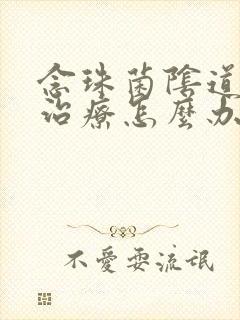 念珠菌陰道
治療怎麼办
不愛耍流氓